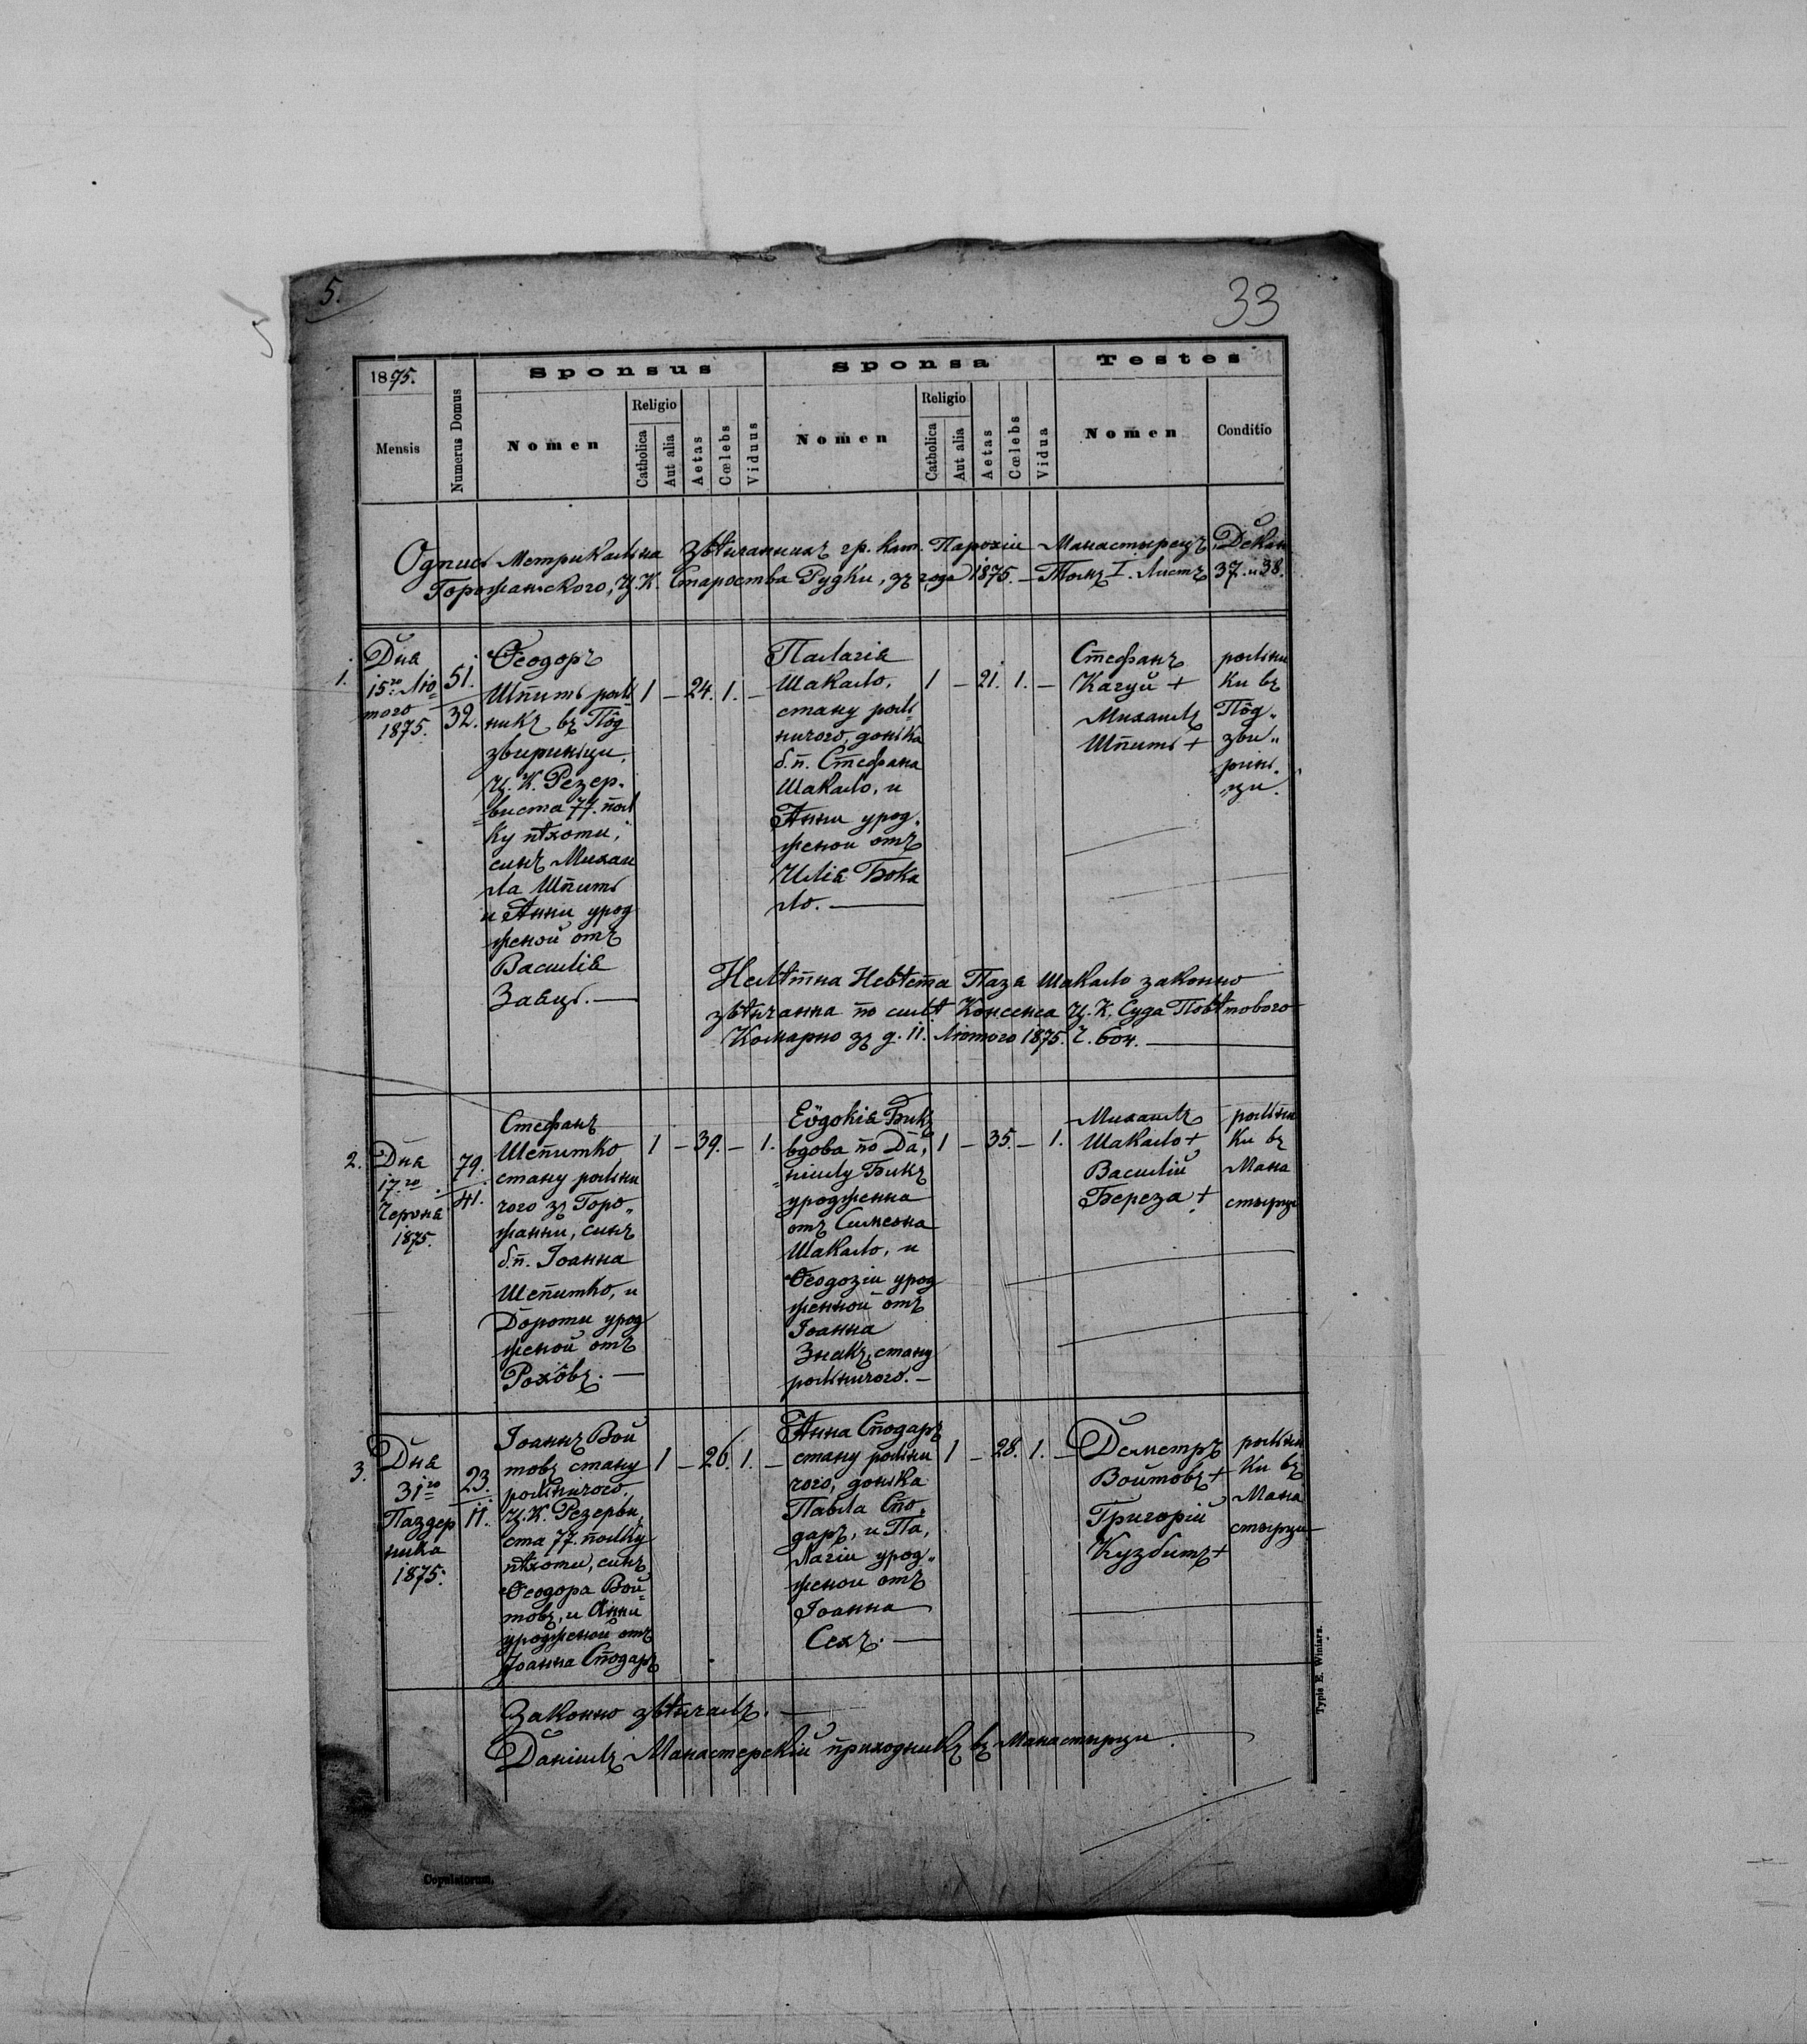 5.
33
1875.
Mensis
Numerus Domus
Sponsus
Nomen
Religio
Catholica
Aut alia
Aetas
Cœlebs
Viduus
Sponsa
Nomen
Religio
Catholica
Aut alia
Aetas
Cœlebs
Vidua
Testes
Nomen
Conditio
Одпись Метрикальна Звѣнчанныхъ гр. кат. Парохіи Манастырець, Декан.
Горожанского, Ц. К. Староства Рудки, зъ года 1875. – Томъ I. Листъ 37. и 38.
1.
Дня
15го Лю
того
1875.
51.
32.
Ѳеодоръ
Шпить роль
никъ въ Пôд
звиринци,
Ц. К. Резер.
виста 77. пол
ку пѣхоти,
синъ Михаи
ла Шпить
и Анни урод
женой отъ
Василія
Заяць. —
1 – 24. 1. –
Палагія
Шакало,
стану роль
ничого, донька
б. п. Стефана
Шакало, и
Анни урод.
женои отъ
Илія Бока
ло. —
1 – 21. 1. –
Стефанъ
Качуй +
Михаилъ
Шпить +
рольни
ки въ
Пôд„
зви„
ринь.
ци.
Нелѣтна Невѣста Пазя Шакало законно
звѣнчанна по силѣ Консенса Ц. К. Суда Повѣтового
Комарно зъ д. 11. Лютого 1875. Ч. 604. —
2.
Дня
17го
Червня
1875.
79.
41.
Стефанъ
Шепитко
стану рольни
чого зъ Горо„
жанни, синъ
б. п. Іоанна
Шепитко, и
Дороти урод
женой отъ
Рохôвъ. —
1 – 39. – 1.
Еѵдокія Бикъ
вдова по Да,
ніилу Бикъ
уродженна
отъ Симеона
Шакало, и
Ѳеодозіи урод
женной отъ
Іоанна
Знакъ, стану
рольничого. –
1 – 35. – 1.
Михаилъ
Шакало +
Василій
Береза +
рольни
ки въ
Мана
стырци
3.
Дня
31го
Паздер
ника
1875.
23.
11.
Іоаннъ Вой
товъ стану
рольничого,
Ц. К. Резерви,
ста 77. полку
пѣхоти, синъ
Ѳеодора Вой
товъ, и Анни
уродженой отъ
Іоанна Сподаръ
1 – 26. 1. –
Анна Сподаръ
стану рольни
чого, донька
Павла Спо„
даръ, и Па,
лагіи урод„
женои отъ
Іоанна
Сехъ. —
1 – 28. 1. –
Деметръ
Войтовъ +
Григорій
Кузбитъ +
рольни
ки въ
Мана
стырци
Законно звѣнчалъ. —
Даніилъ Манастерскій приходникъ въ Манастырци.
Typis E. Winiarz.
Copulatorum.